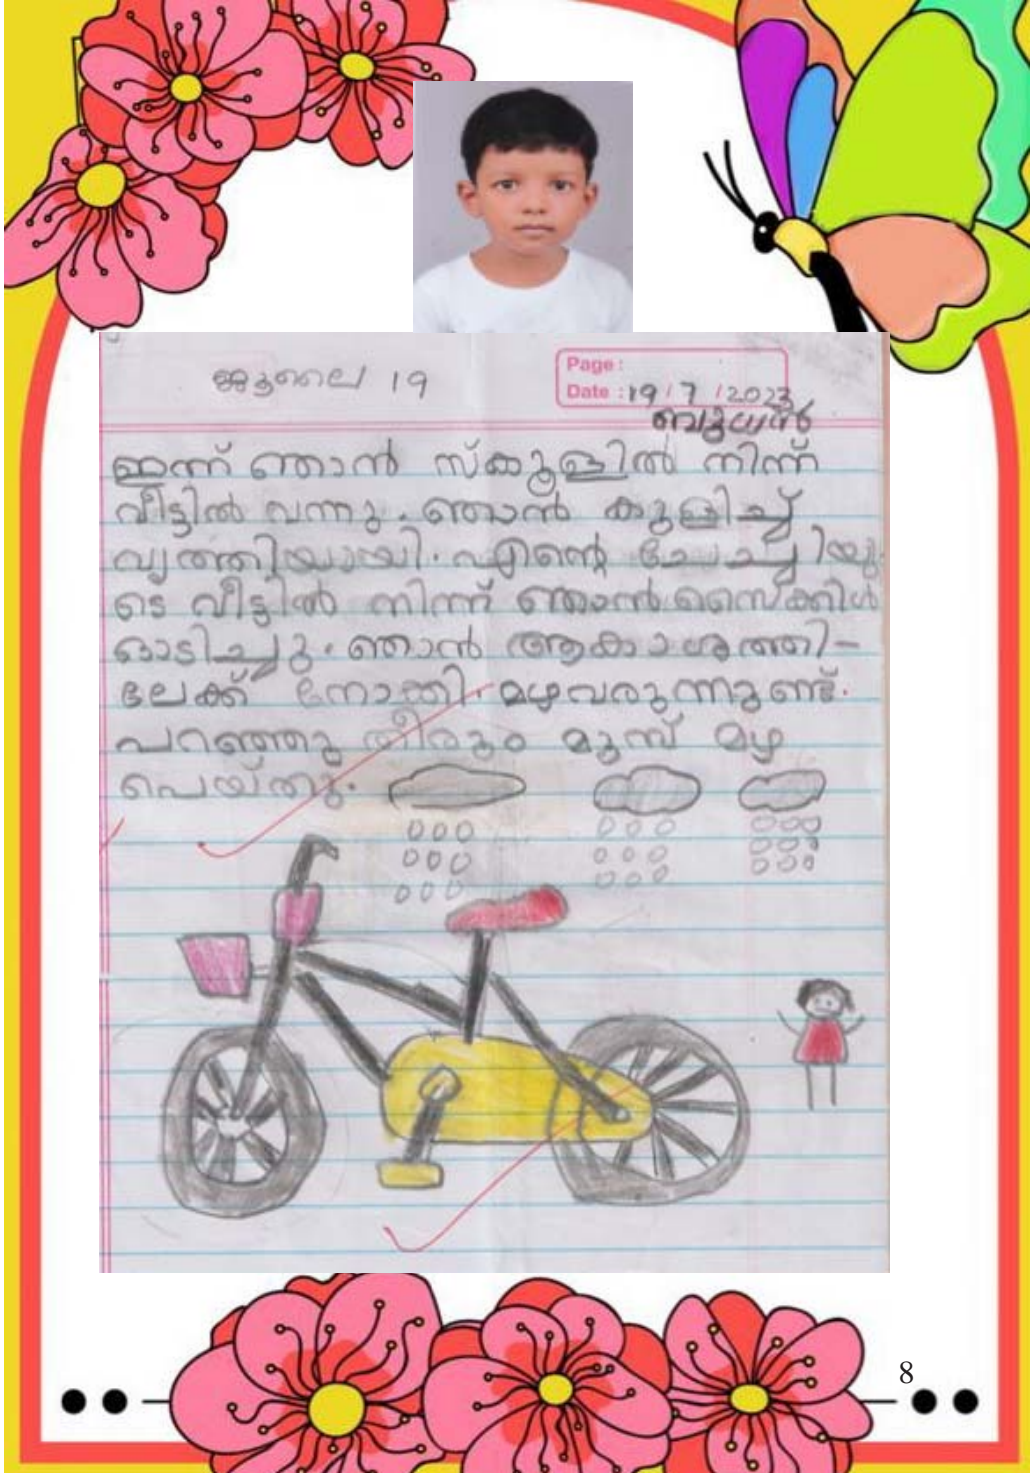 ജൂലൈ 19
Page :
Date : 19 / 7 / 2023
ബുധൻ
ഇന്ന് ഞാൻ സ്ക്കൂളിൽ നിന്ന്
വീട്ടിൽ വന്നു. ഞാൻ കുളിച്ച്
വൃത്തിയായി. എൻ്റെ ചേച്ചിയു
ടെ വീട്ടിൽ നിന്ന് ഞാൻ സൈക്കിൾ
ഓടിച്ചു. ഞാൻ ആകാശത്തി-
ലേക്ക് നോക്കി. മഴവരുന്നുണ്ട്.
പറഞ്ഞു തീരും മുമ്പ് മഴ
പെയ്തു.
8